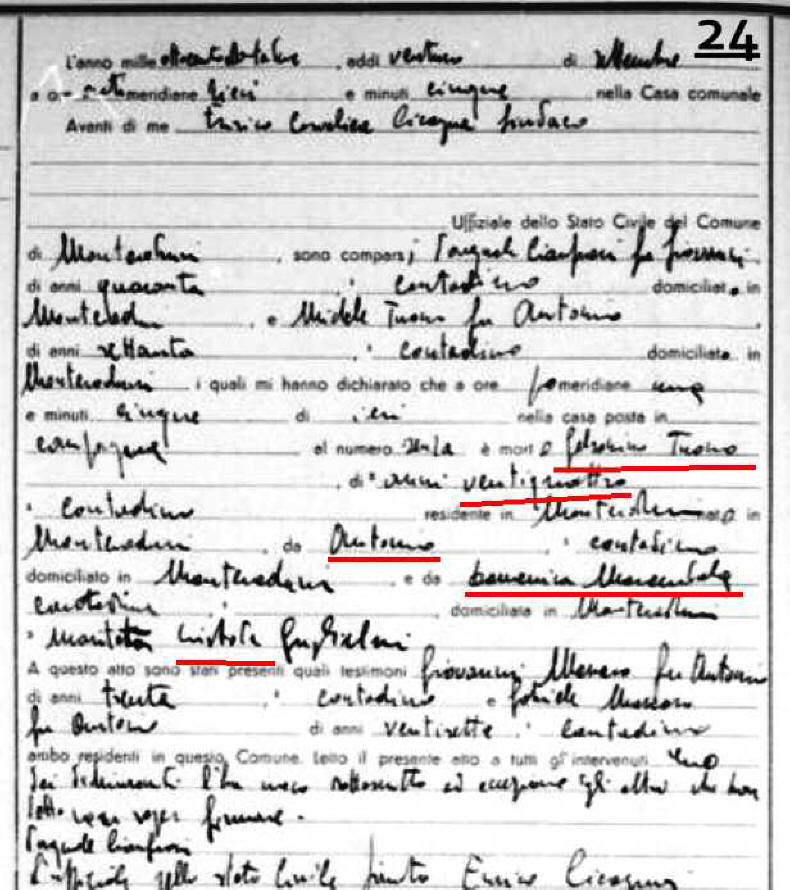 24
L'anno mille , addì ventuno di settembre
a o- meridiane dieci e minuti cinque nella Casa comunale
Avanti di me Enrico Cicogna Sindaco
Uffiziale dello Stato Civile del Comune
di Monteroduni , sono comparsi Pasquale Cianfrani fu Giovanni
di anni quaranta , contadino domiciliato in
Monteroduni , e Michele Tuono fu Antonio
di anni settanta , contadino domiciliato in
Monteroduni i quali mi hanno dichiarato che a ore pomeridiane una
e minuti cinque di ieri nella casa posta in
campagna al numero senza è morto Tuono
, di anni ventiquattro
, contadino residente in Monteroduni nato in
Monteroduni , da Antonio , contadino
domiciliato in Monteroduni e da Domenica
contadina , domiciliata in Monteroduni
, Guglielmi
A questo atto sono stati presenti quali testimoni Giovanni fu Antonio
di anni trenta , contadino e
fu Antonio di anni ventisette , contadino
ambo residenti in questo Comune. Letto il presente atto a tutti gl'intervenuti uno
dei dichiaranti l'ha meco sottoscritto ad eccezione gli altri che non
firmare.
Pasquale Cianfrani
L'uffiziale dello stato Civile firmato Enrico Cicogna